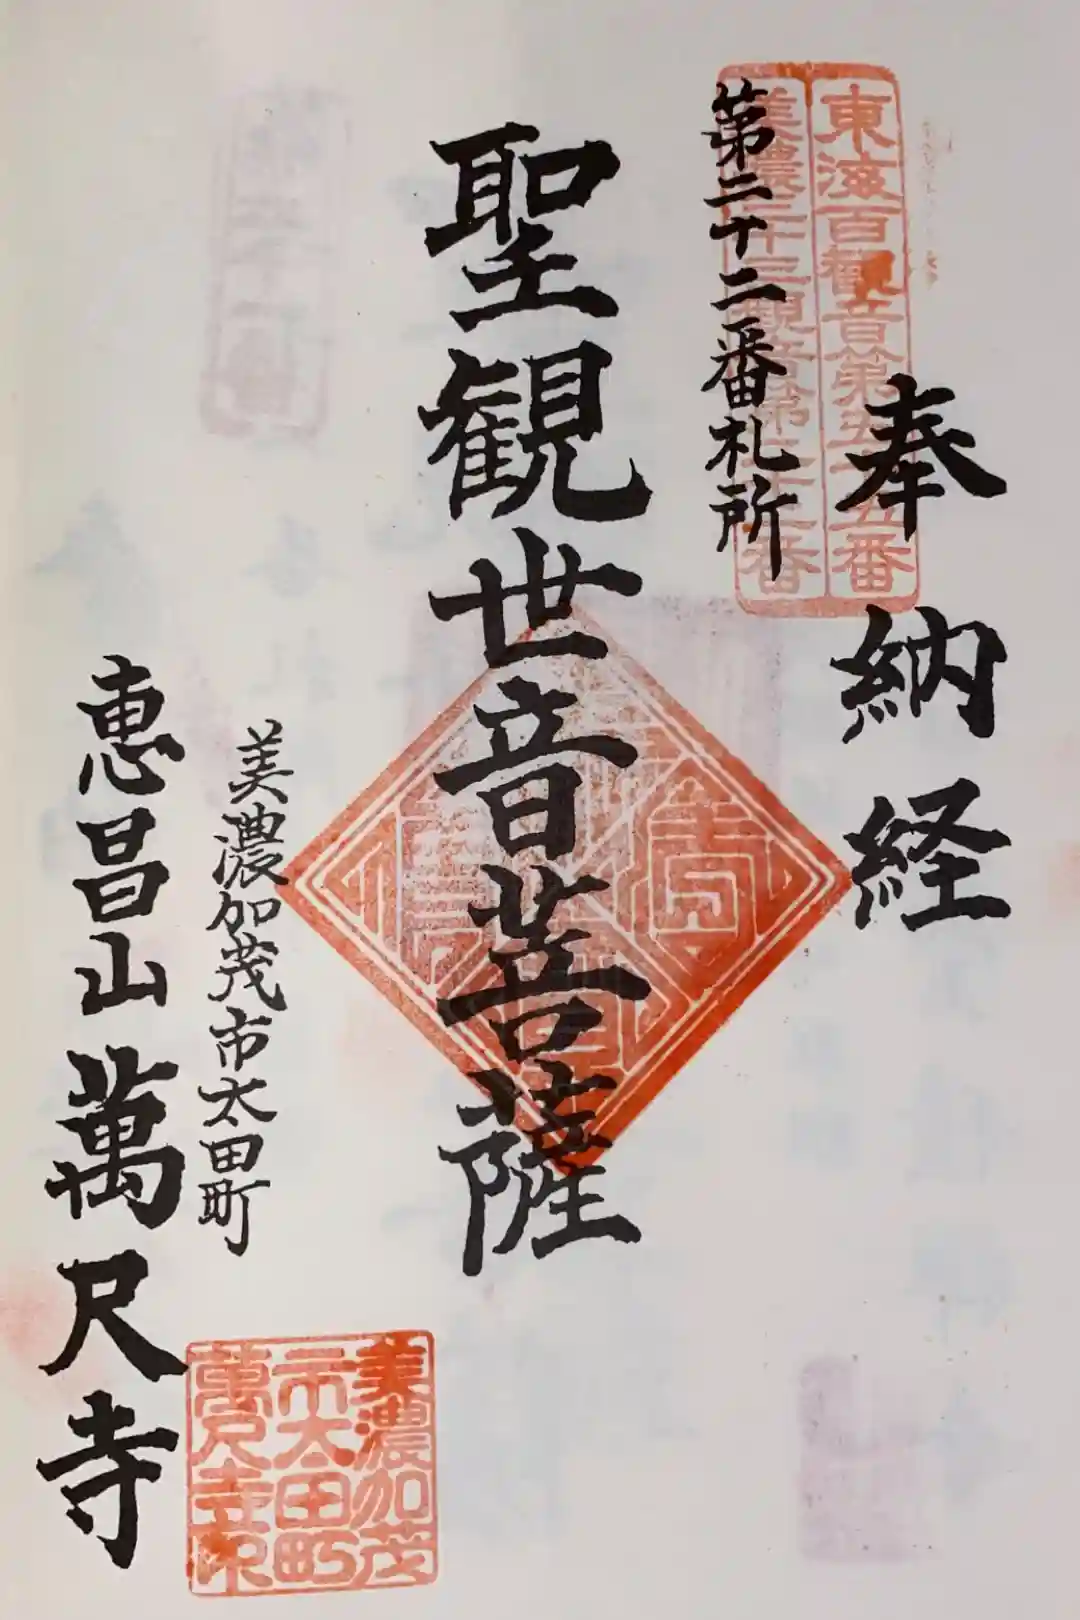 東海百観音第五十五番
美濃三十三観音第二十二番
奉納経
第二十二番札所
聖観世音菩薩
美濃加茂市太田町
恵昌山萬尺寺
美濃加茂
市太田町
萬尺寺印